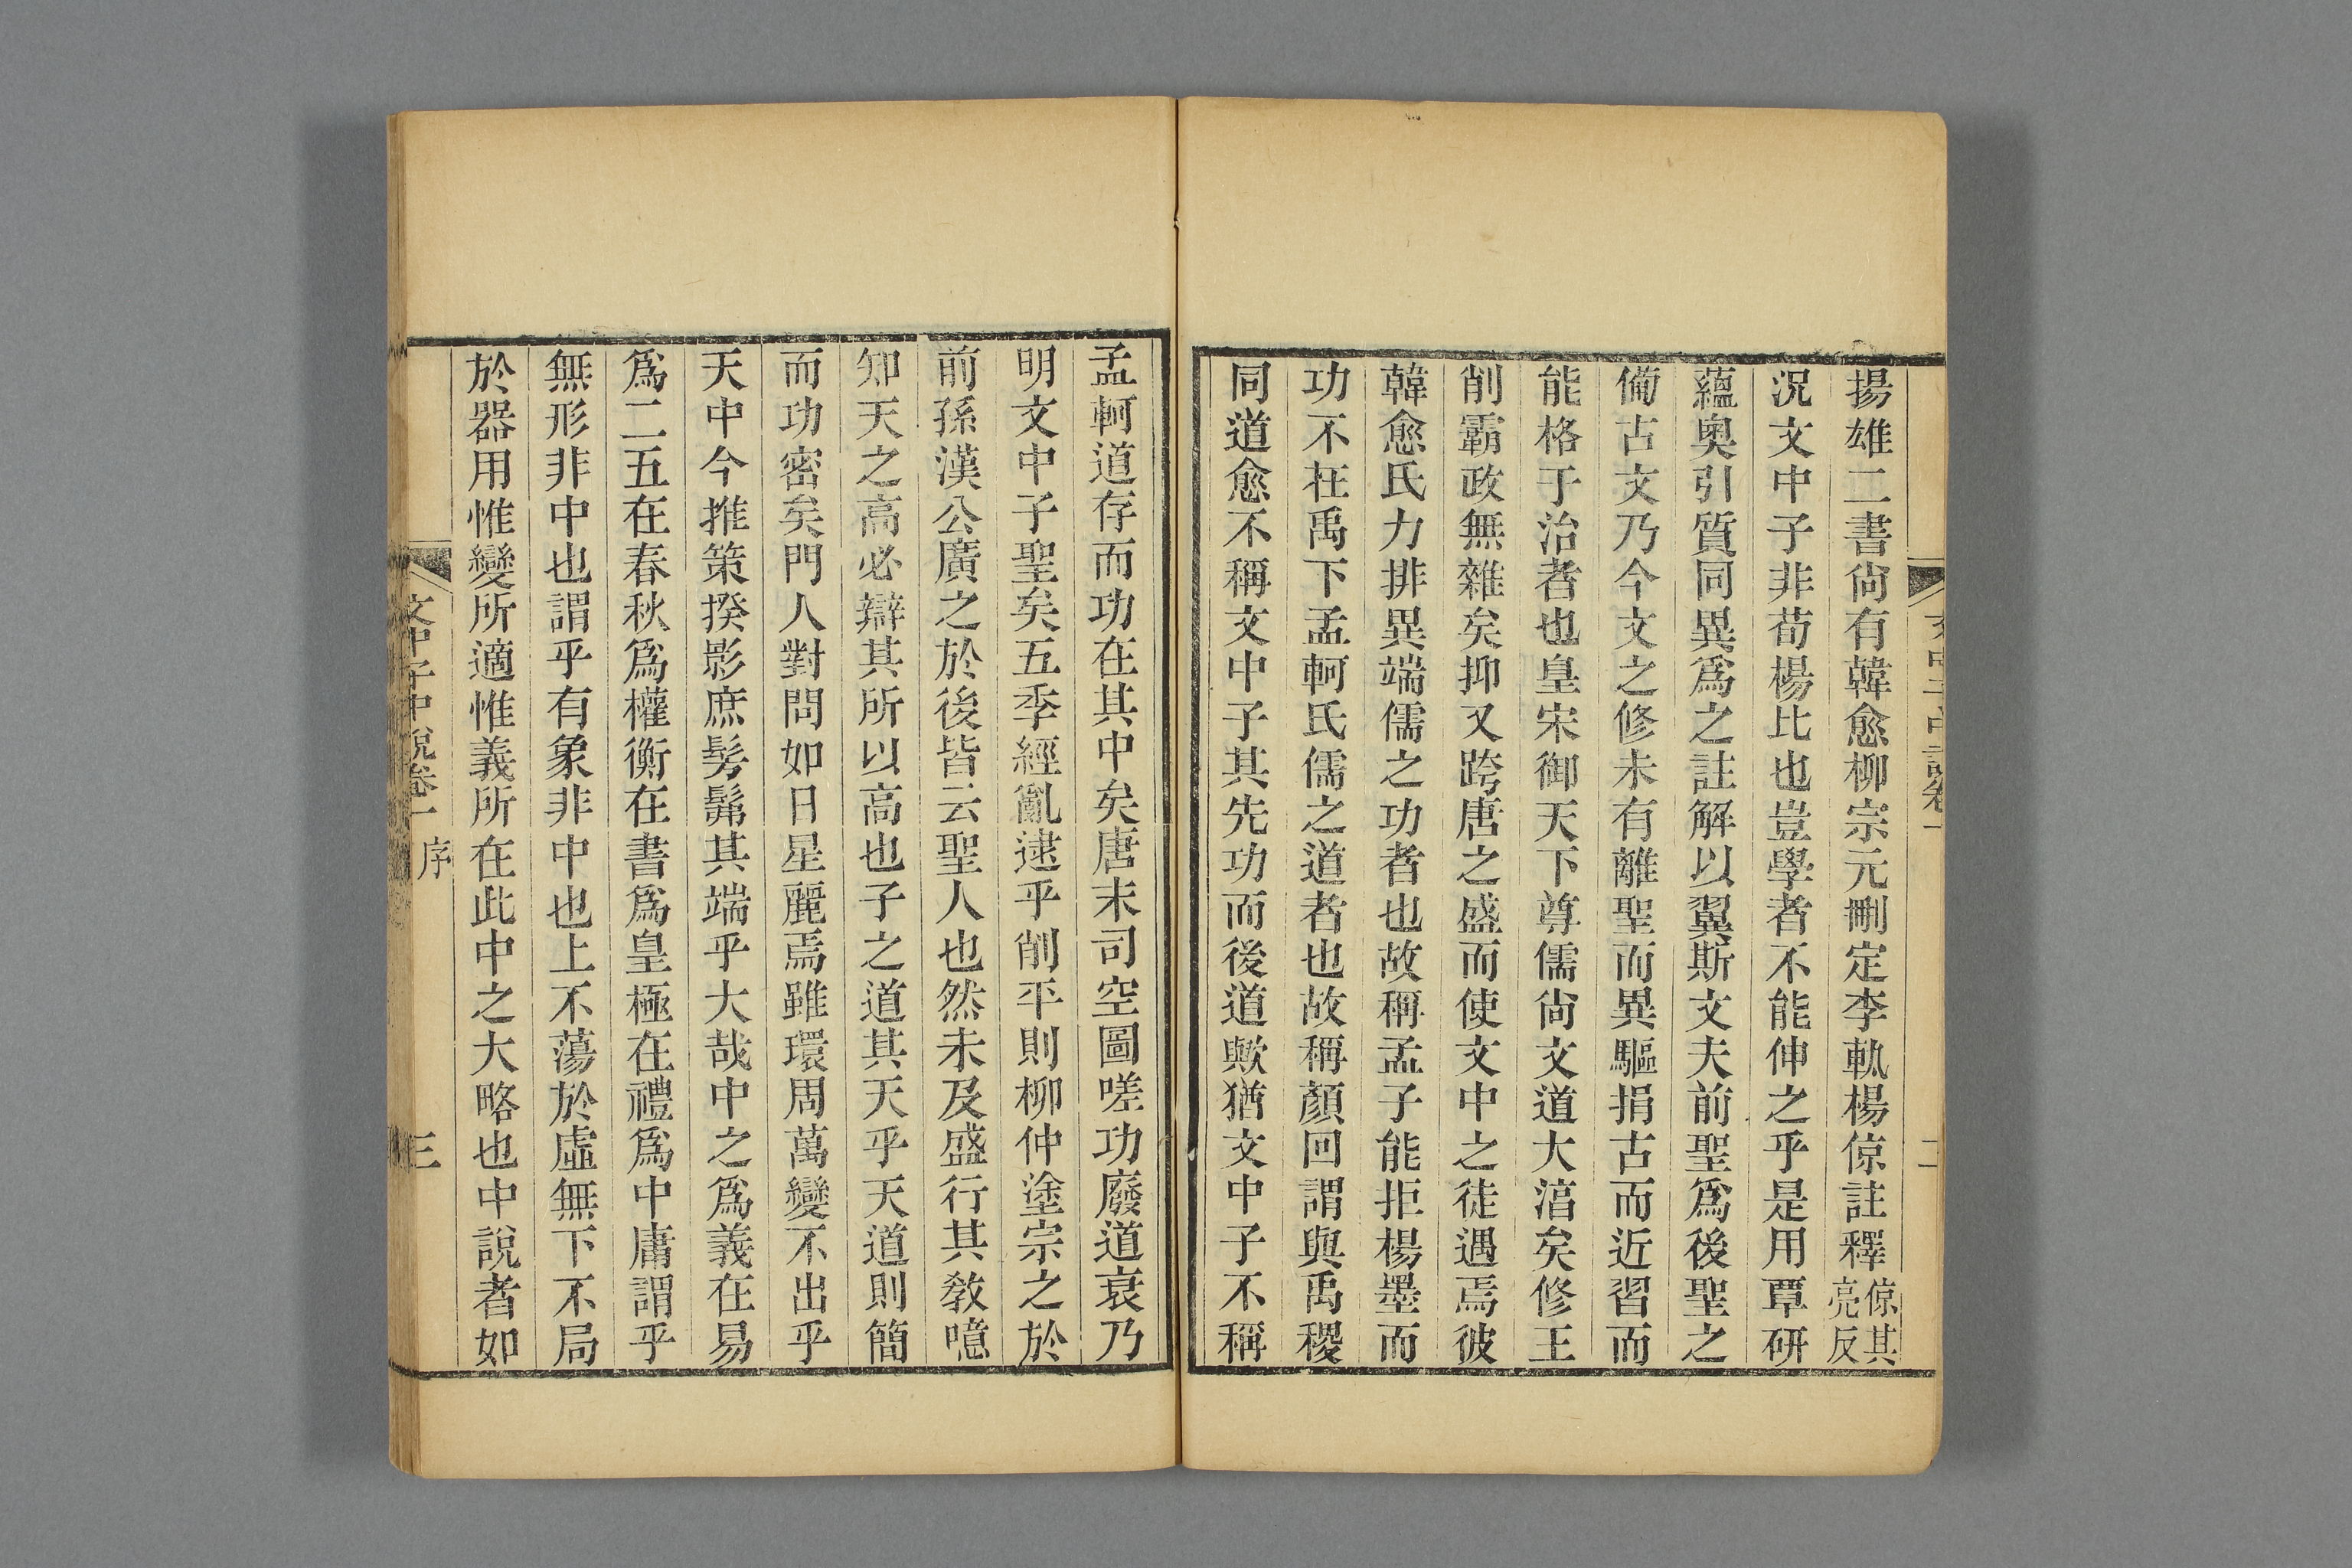 揚雄二書尙有韓愈柳宗元刪定李軌楊倞註釋倞其亮反
况文中子非荀楊比也豈學者不能伸之乎是用覃研
蘊奧引質同異爲之註解以翼斯文夫前聖爲後聖之
備古文乃今文之修未有離聖而異驅捐古而近習而
能格于治者也皇宋御天下尊儒尙文道大淯矣修王
削霸政無雜矣抑又跨唐之盛而使文中之徒遇焉彼
韓愈氏力排異端儒之功者也故稱孟子能拒楊墨而
功不在禹下孟軻氏儒之道者也故稱顏回謂與禹稷
同道愈不稱文中子其先功而後道歟猶文中子不稱
文中子中說卷一
二
孟軻道存而功在其中矣唐末司空圖嗟功廢道衰乃
明文中子聖矣五季經亂逮乎削平則柳仲塗宗之於
前孫漢公廣之於後皆云聖人也然未及盛行其敎噫
知天之高必辯其所以高也子之道其天乎天道則簡
而功密矣門人對問如日星麗焉雖環周萬變不出乎
天中今推策揆影庶髣髴其端乎大哉中之爲義在易
爲二五在春秋爲權衡在書爲皇極在禮爲中庸謂乎
無形非中也謂乎有象非中也上不蕩於虛無下不局
於器用惟變所適惟義所在此中之大略也中說者如
文中子中說卷一 序
三